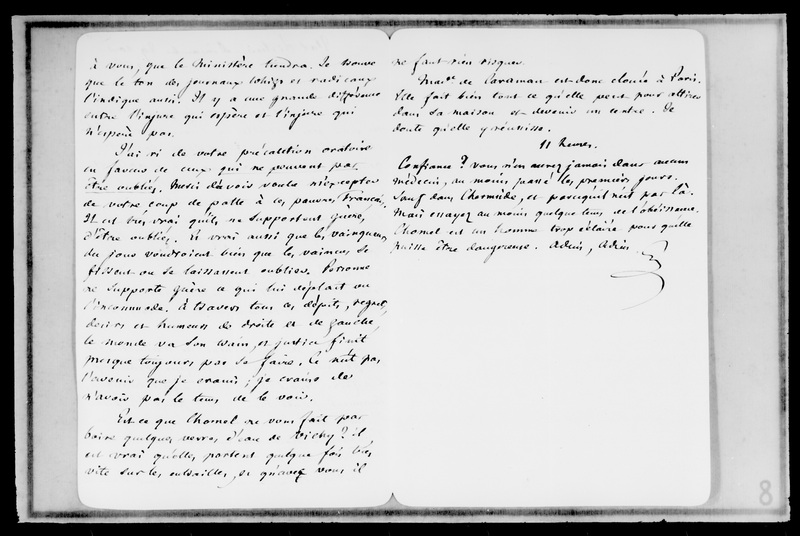 à vous, que le ministère tiendra. Je trouve
que le ton des journaux whigs et radicaux
l'indique aussi. Il y a une grande différence
entre l'injure qui espère et l'injure qui
n'espère pas.
J'ai ri de votre précaution oratoire
en faveur de ceux qui ne peuvent pas
être oubliés. Merci d'avoir voulu m'excepter
de votre coup de patte à ces pauvres Français.
Il est très vrai qu'ils ne supportent guère
d'être oubliés. Et vrai aussi que les vainqueurs
du jour voudroient bien que les vaincus se
fissent ou se laissassent oublier. Personne
ne supporte guère ce qui lui déplait ou
l'incommode. à travers tous ces dépits, regrets,
desirs et humeurs de droite et de gauche,
le monde va son train, et justice finit
presque toujours par se faire. Ce n'est pas
l'avenir que je crains ; je crains de
n'avoir pas le tems de le voir.
Est-ce que Chomel ne vous fait pas
boire quelques verres d'eau de Vichy ? il
est vrai qu'elles portent quelque fois très
vite sur les entrailles, et qu'avec vous il
ne faut rien risquer.
Made de Caraman est donc clouée à Paris.
Elle fait bien tout ce qu'elle peut pour attirer
dans sa maison et devenir un centre. Je
doute qu'elle y réussisse.
11 heures.
Confiance ? vous n'en aurez jamais dans aucun
médecin, au moins passé les premiers jours.
Sauf dans Chermside, et parcequ'il n'est pas là.
Mais essayez au moins quelque tems de l'obéissance.
Chomel est un homme trop éclairé pour qu'elle
puisse être dangereuse. Adieu, Adieu
8